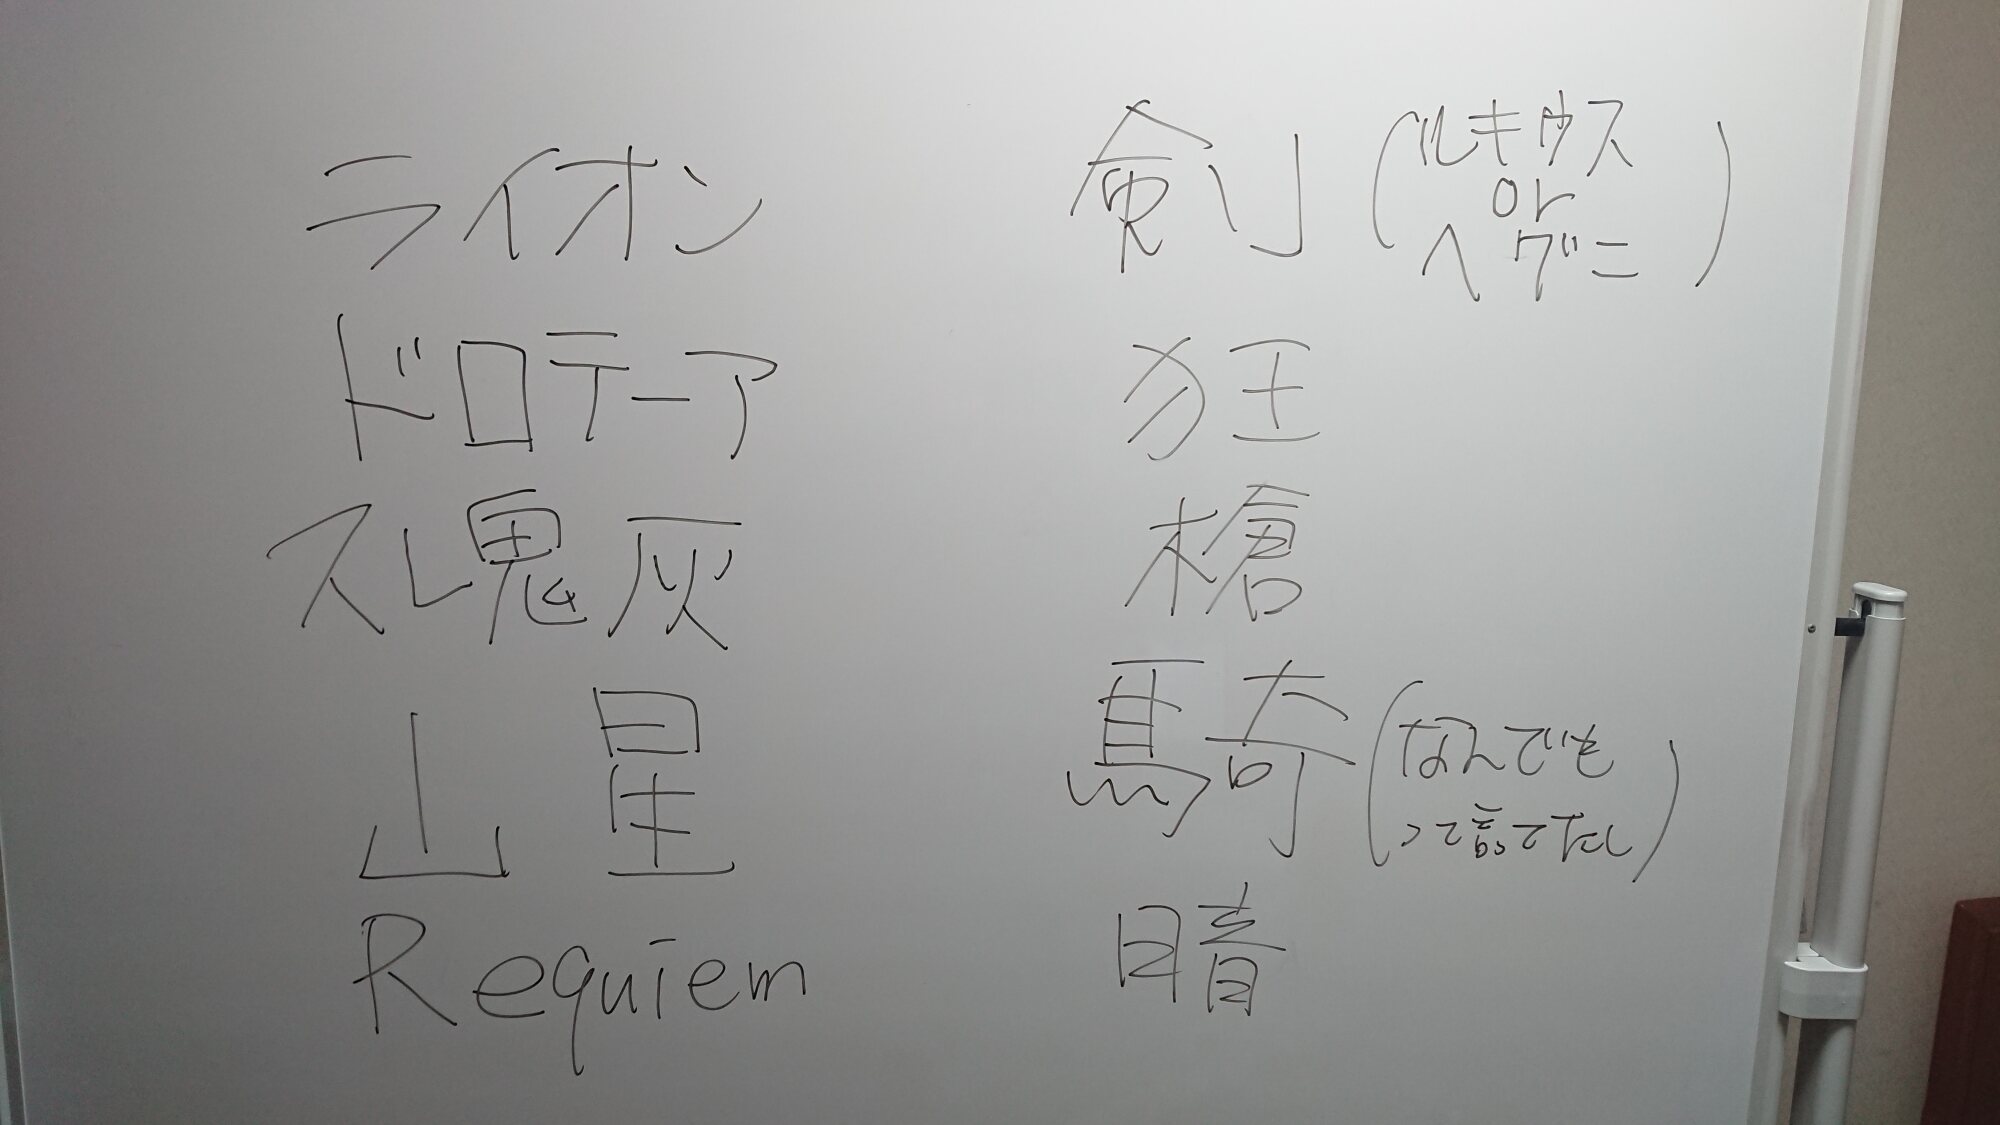 ライオン
剣(ルキウス
or
ヘグニ)
ドロテーア
狂
スレ鬼灰
槍
山星
騎(なんでも
って言ってたし)
Requiem
晴